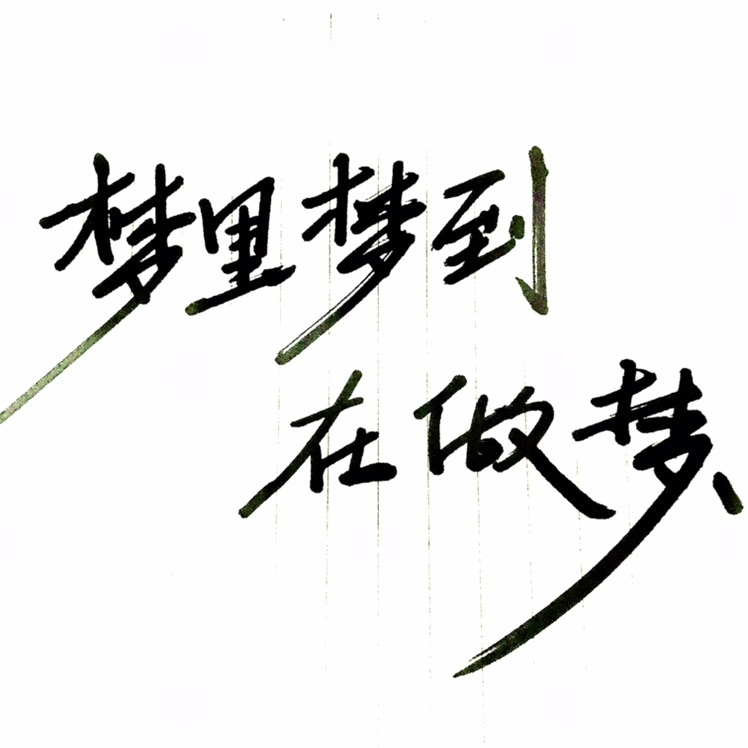 梦里梦到
在做梦、